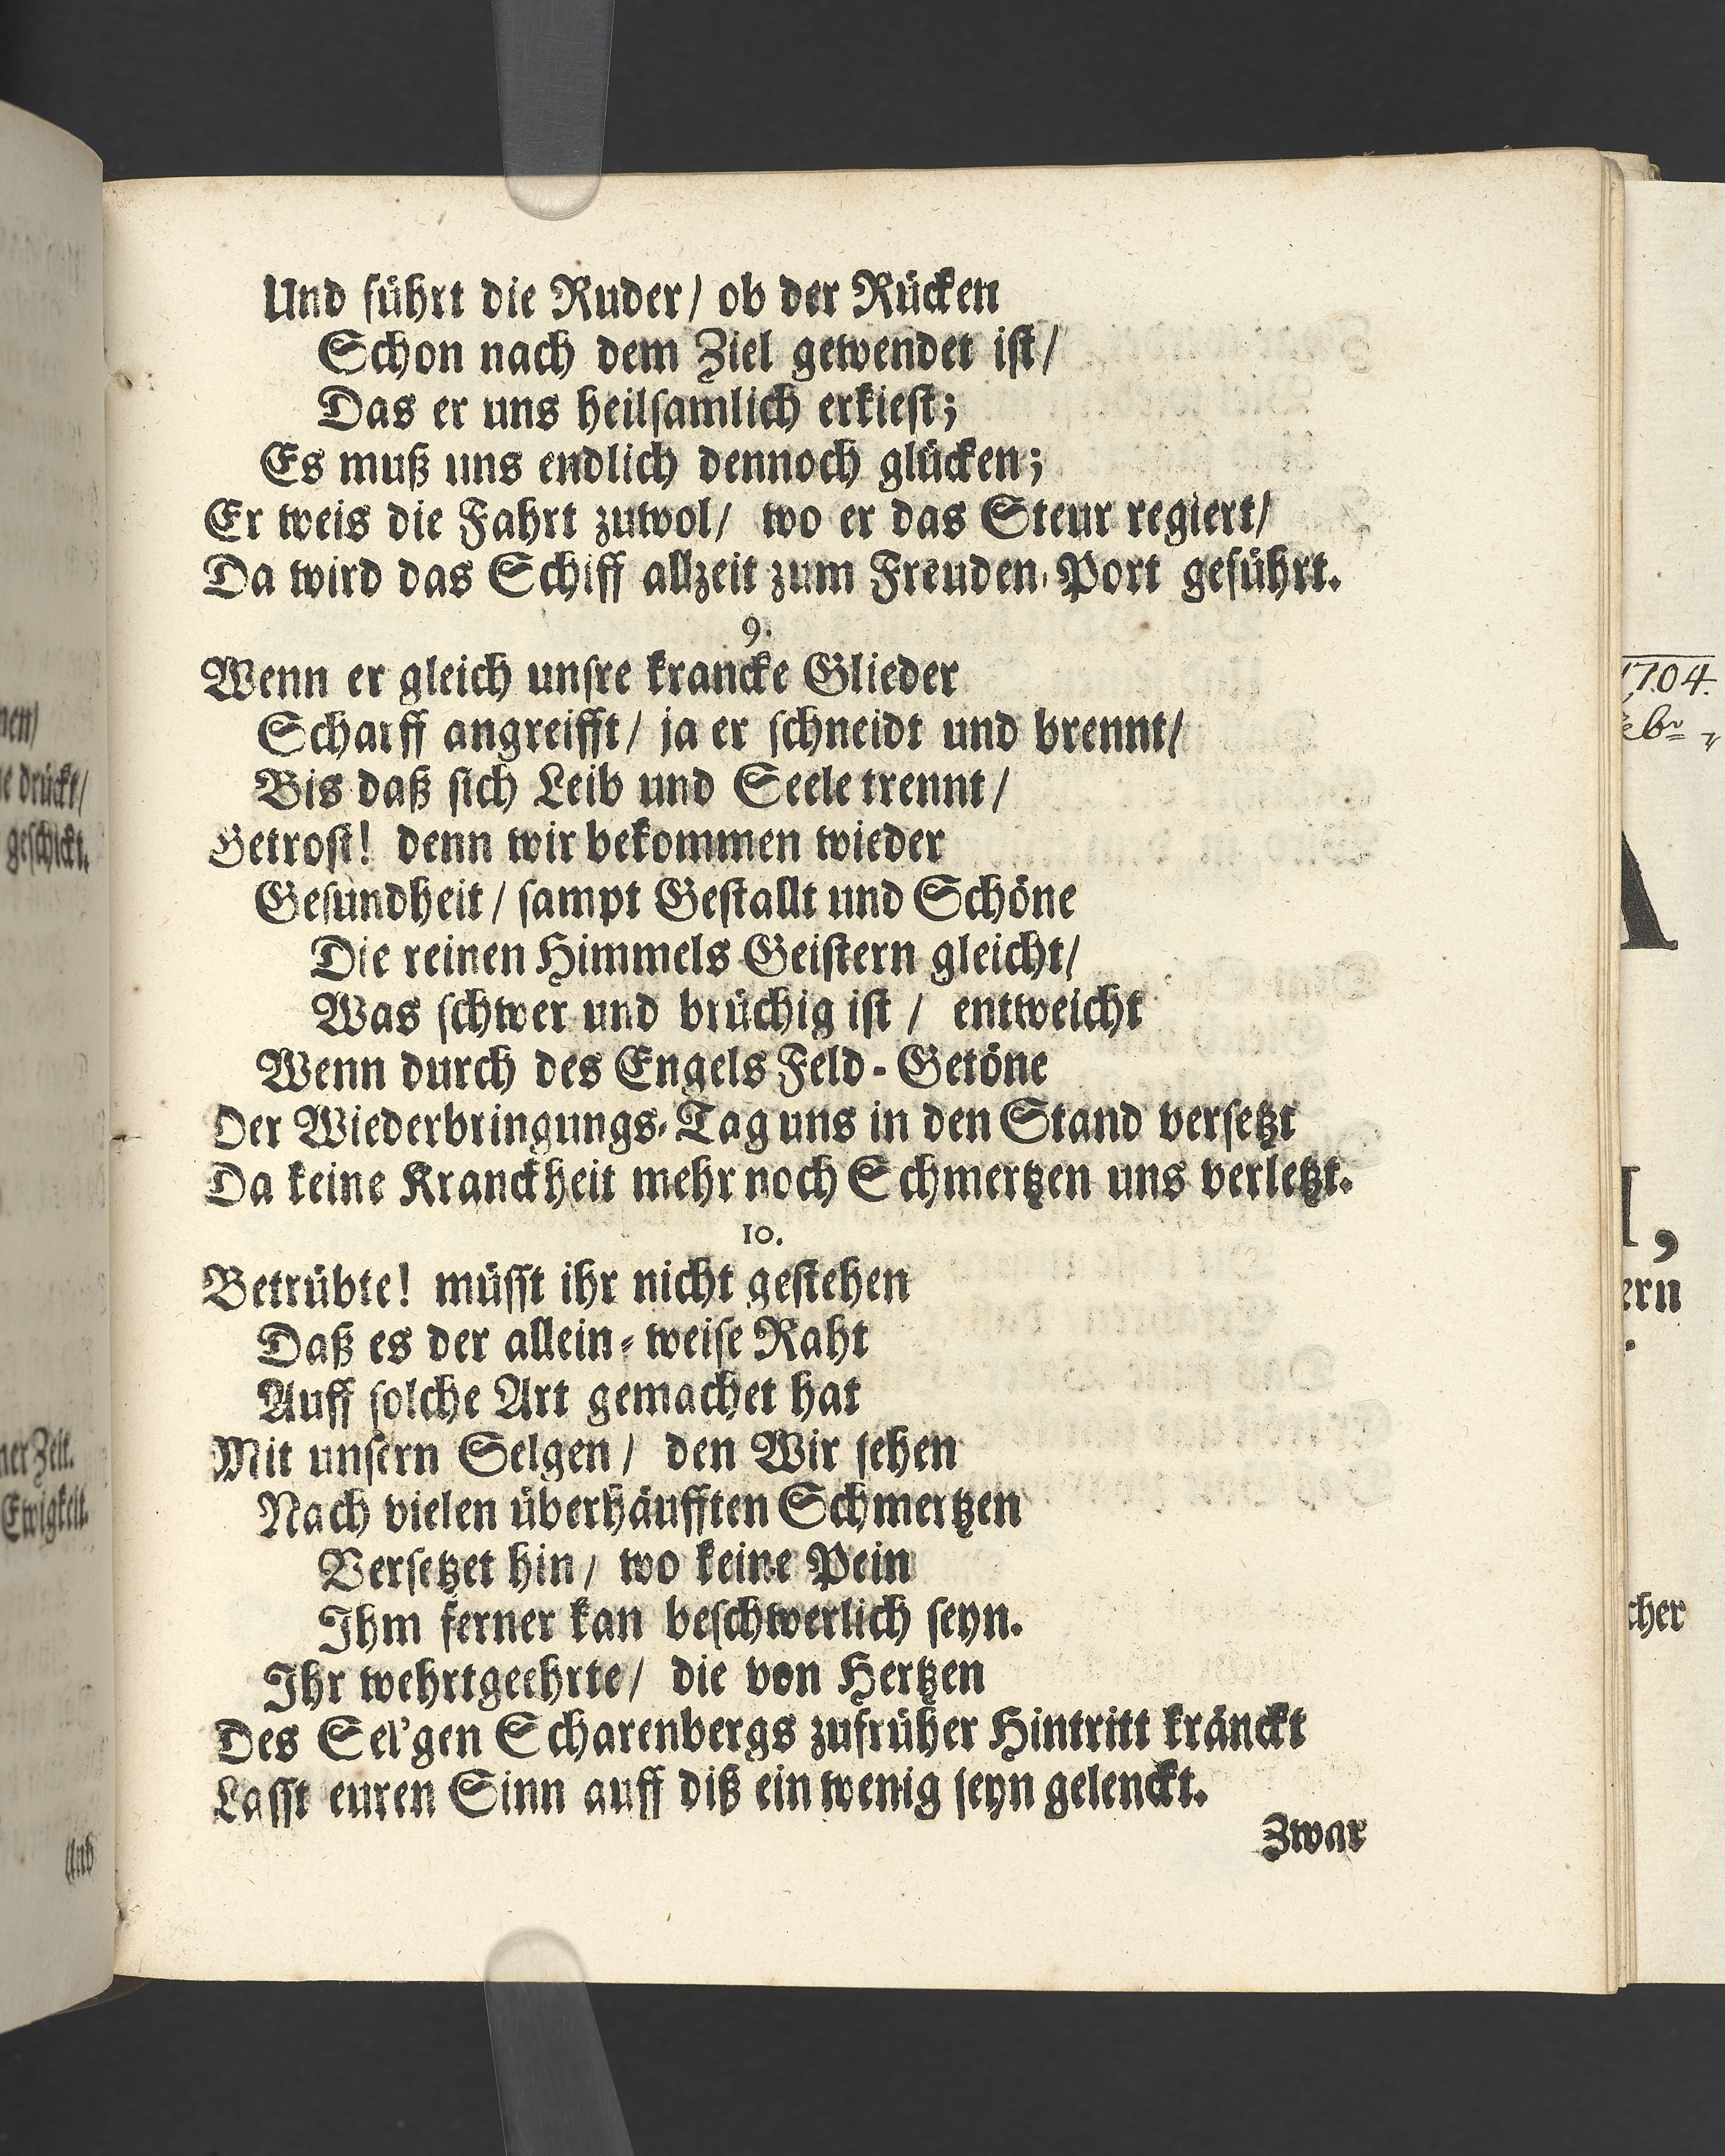 Und führt die Ruder/ ob der Rücken
Schon nach dem Ziel gewendet ist/
Das er uns heilsamlich erkiest;
Es muß uns endlich dennoch glücken;
Er weis die Fahrt zuwol/ wo er das Steur regiert/
Da wird das Schiff allzeit zum Freuden-Port geführt.
9.
Wenn er gleich unsre krancke Glieder
Scharff angreifft/ ja er schneidt und brennt/
Bis daß sich Leib und Seele trennt/
Getrost! denn wir bekommen wieder
Gesundheit/ sampt Gestallt und Schöne
Die reinen Himmels-Geistern gleicht/
Was schwer und brüchig ist/ entweicht
Wenn durch des Engels Feld-Getöne
Der Wiederbringungs-Tag uns in den Stand versetzt
Da keine Kranckheit mehr noch Schmertzen uns verletzt.
10.
Betrübte! müsst ihr nicht gestehen
Daß es der allein-weise Raht
Auff solche Art gemachet hat
Mit unsern Selgen/ den Wir sehen
Nach vielen überhäufften Schmertzen
Versetzet hin/ wo keine Pein
Ihm ferner kan beschwerlich seyn.
Ihr wehrtgeehrte/ die von Hertzen
Des Sel'gen Scharenbergs zufrüher Hintritt kränckt
Lasst euren Sinn auff diß ein wenig seyn gelenckt.
Zwar
nen/
drückt/
geschickt.
ner Zeit.
Ewigkeit.
Und
1704.
ern
cher